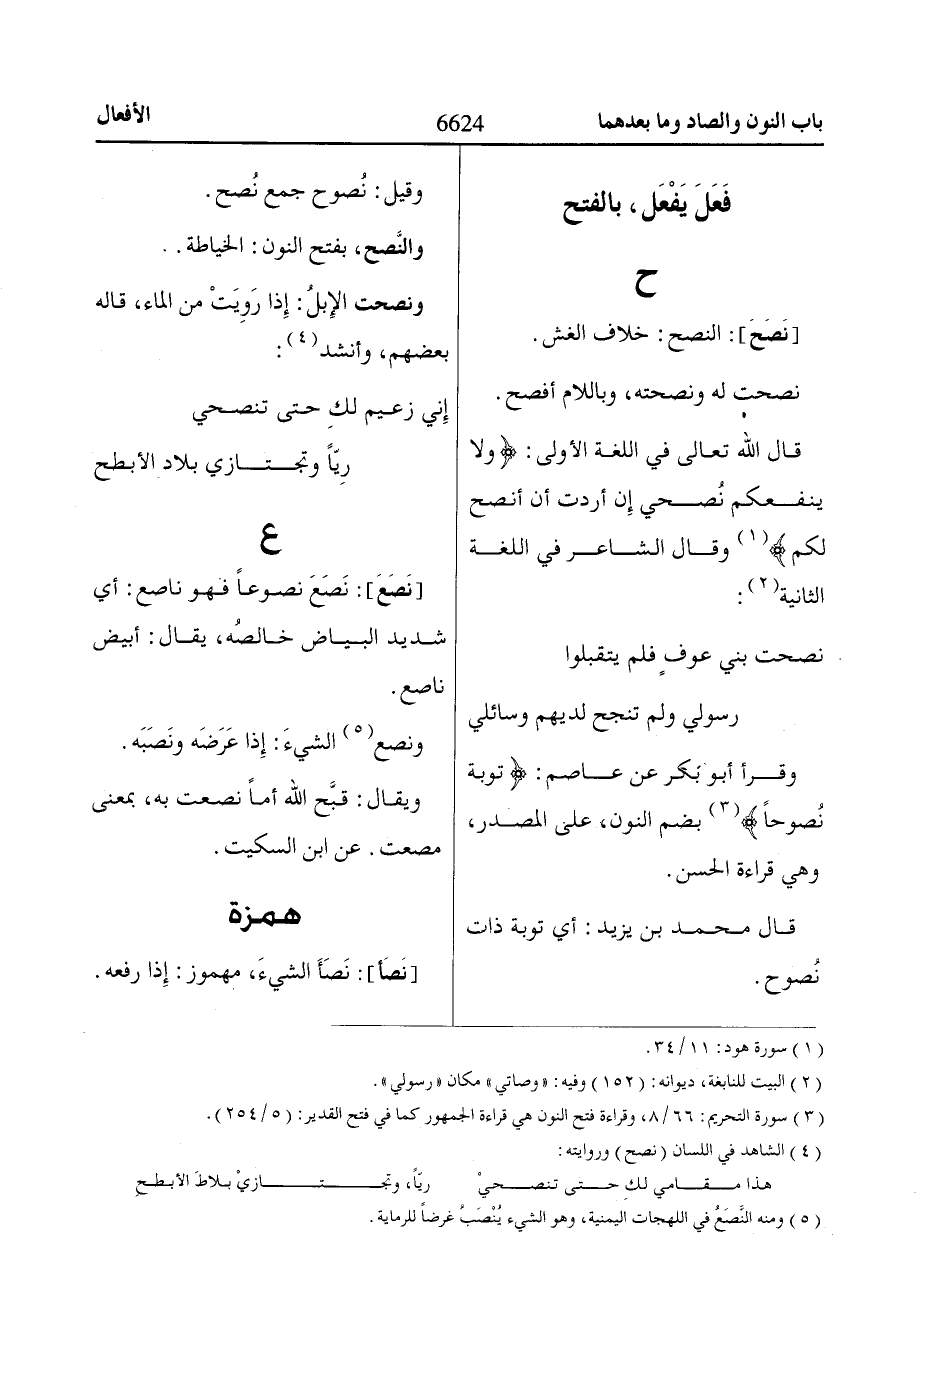 باب النون والصاد وما بعدهما
6624
الأفعال
فَعَلَ يَفْعَل، بالفتح
ح
[نَصَحَ]: النصح: خلاف الغش.
نصحت له ونصحته، وباللام أفصح.
قال الله تعالى في اللغة الأولى: ﴿ولا
ينفعكم نُصحي إن أردت أن أنصح
لكم﴾(١) وقال الشاعر في اللغة
الثانية(٢):
نصحت بني عوفٍ فلم يتقبلوا
رسولي ولم تنجح لديهم وسائلي
وقرأ أبو بكر عن عاصم: ﴿توبة
نُصوحاً﴾(٣) بضم النون، على المصدر،
وهي قراءة الحسن.
قال محمد بن يزيد: أي توبة ذات
نُصوح.
وقيل: نُصوح جمع نُصح.
والنَّصح، بفتح النون: الخياطة.
ونصحت الإبلُ: إذا رَوِيَتْ من الماء، قاله
بعضهم، وأنشد(٤):
إني زعيم لكِ حتى تنصحي
ريّاً وتجتازي بلاد الأبطح
ع
[نَصَعَ]: نَصَعَ نصوعاً فهو ناصع: أي
شديد البياض خالصُه، يقال: أبيض
ناصع.
ونصع(٥) الشيءَ: إذا عَرَضَه ونَصَبَه.
ويقال: قبَّح الله أماً نصعت به، بمعنى
مصعت. عن ابن السكيت.
همزة
[نَصَأ]: نَصَأَ الشيءَ، مهموز: إذا رفعه.
(١) سورة هود: ١١/٣٤.
(٢) البيت للنابغة، ديوانه: (١٥٢) وفيه: «وصاتي» مكان «رسولي».
(٣) سورة التحريم: ٦٦/٨، وقراءة فتح النون هي قراءة الجمهور كما في فتح القدير: (٥/٢٥٤).
(٤) الشاهد في اللسان (نصح) وروايته:
هذا مقامي لكِ حتى تنصحيْ ريّاً، وتجتازيْ بلاطَ الأبطحِ
(٥) ومنه النَّصَعُ في اللهجات اليمنية، وهو الشيء يُنْصَبُ غرضاً للرماية.